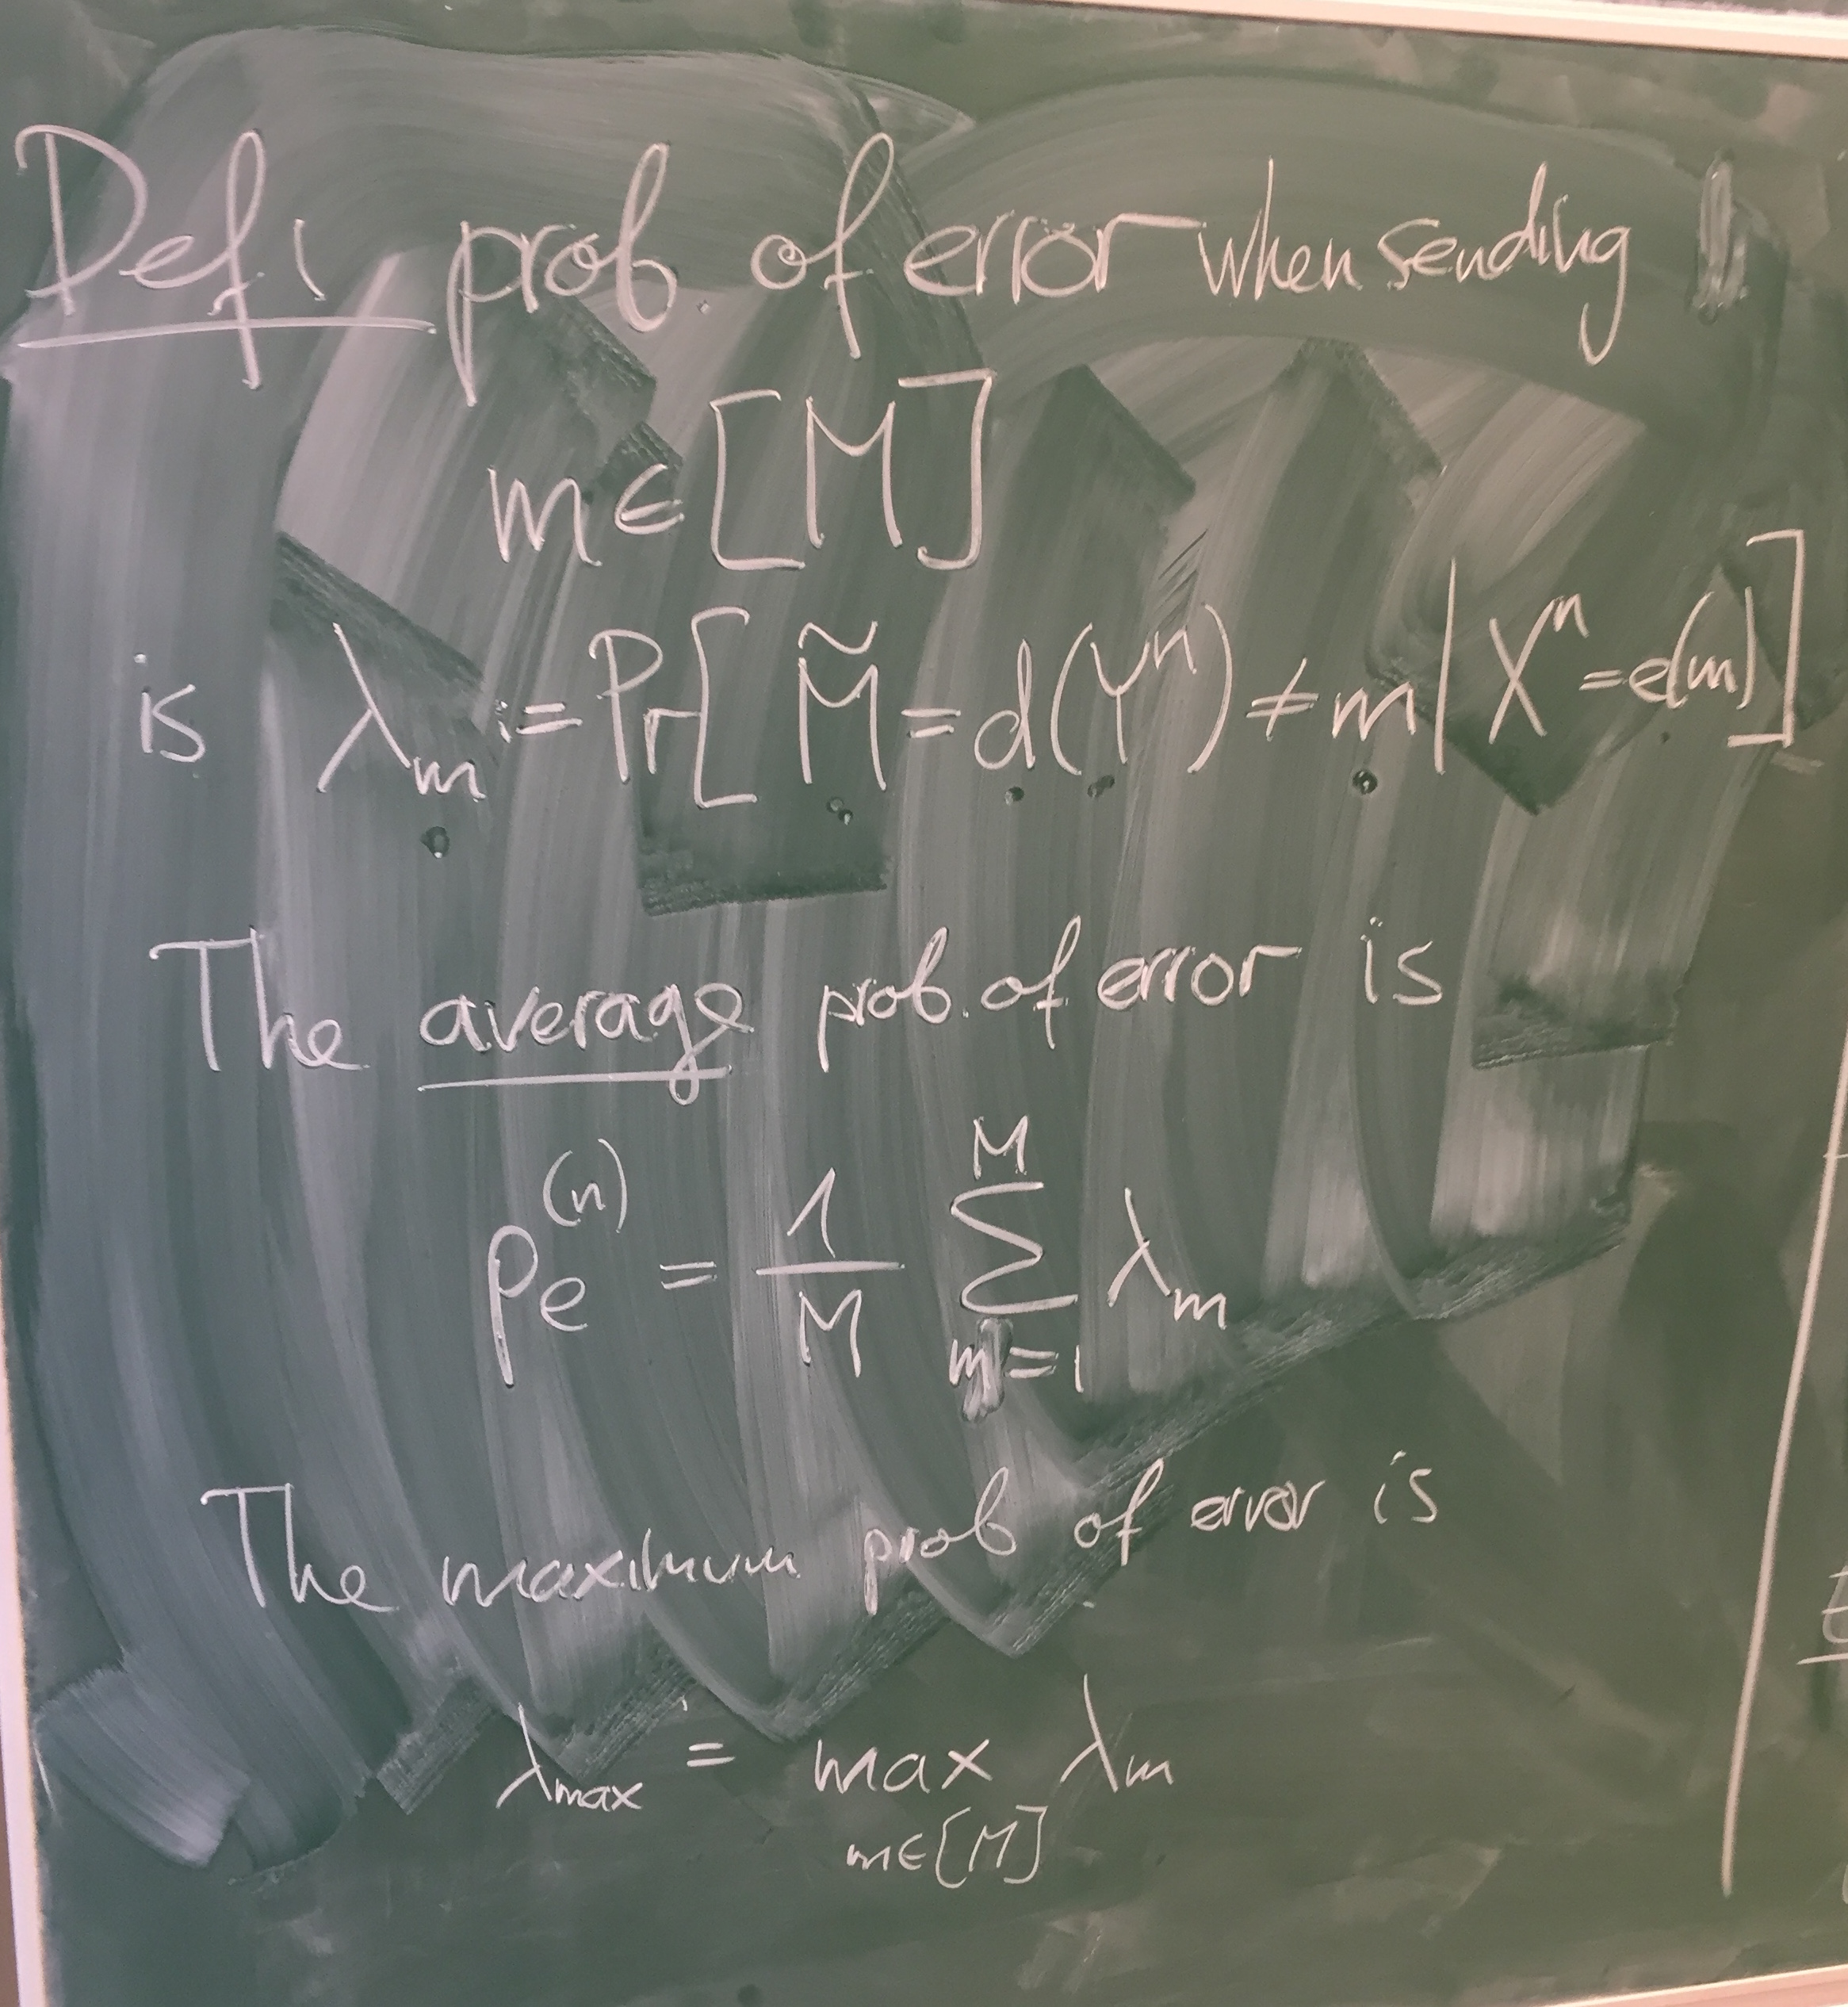 Def: prob. of error when sending
m ∈ [M]
is λ_m := Pr[ M̃ = d(Y^n) ≠ m | X^n = e(m) ]
The average prob. of error is
p_e^(n) = 1/M ∑_{m=1}^{M} λ_m
The maximum prob of error is
λ_max = max_{m∈[M]} λ_m